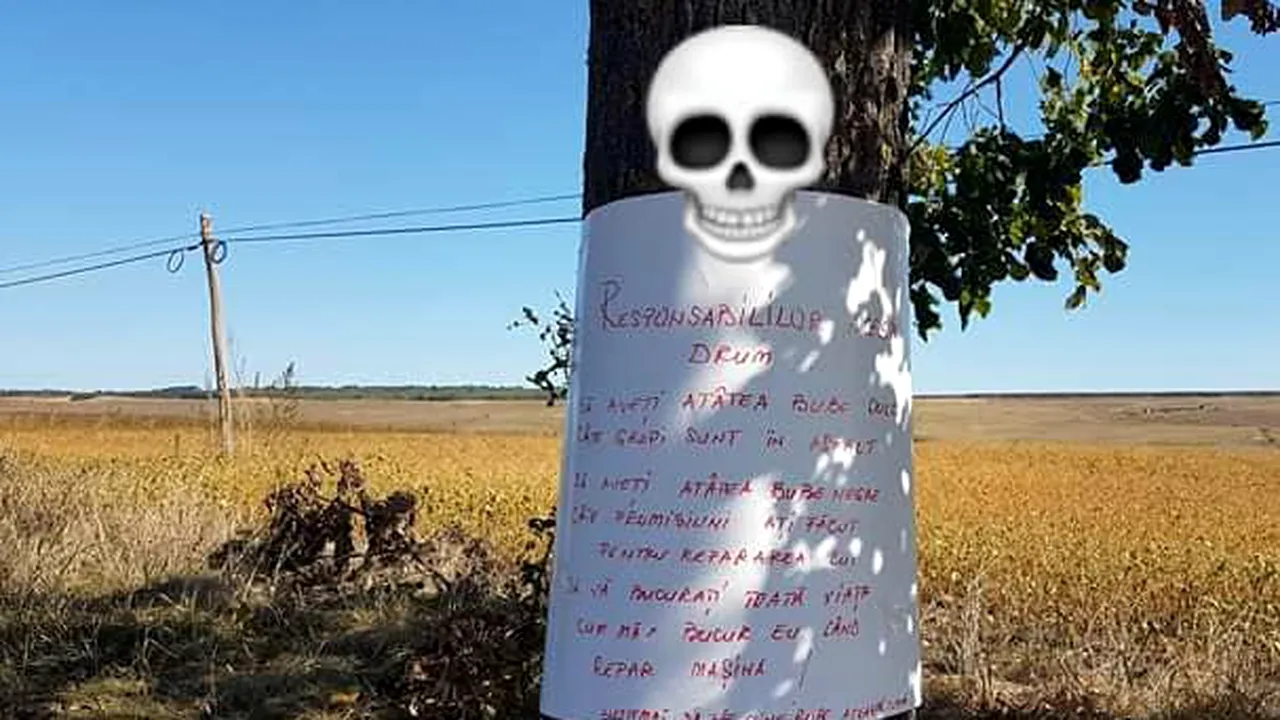 RESPONSABILILOR
DRUM
SĂ AVEȚI ATÂTEA BUBE DULCI
CÂTE GROPI SUNT ÎN ASFALT
SĂ AVEȚI ATÂTEA BUBE NEGRE
CÂTE PROMISIUNI AȚI FĂCUT
PENTRU REPARAREA LUI
SĂ VĂ BUCURAȚI TOATĂ VIAȚA
CUM MĂ BUCUR EU CÂND
REPAR MAȘINA